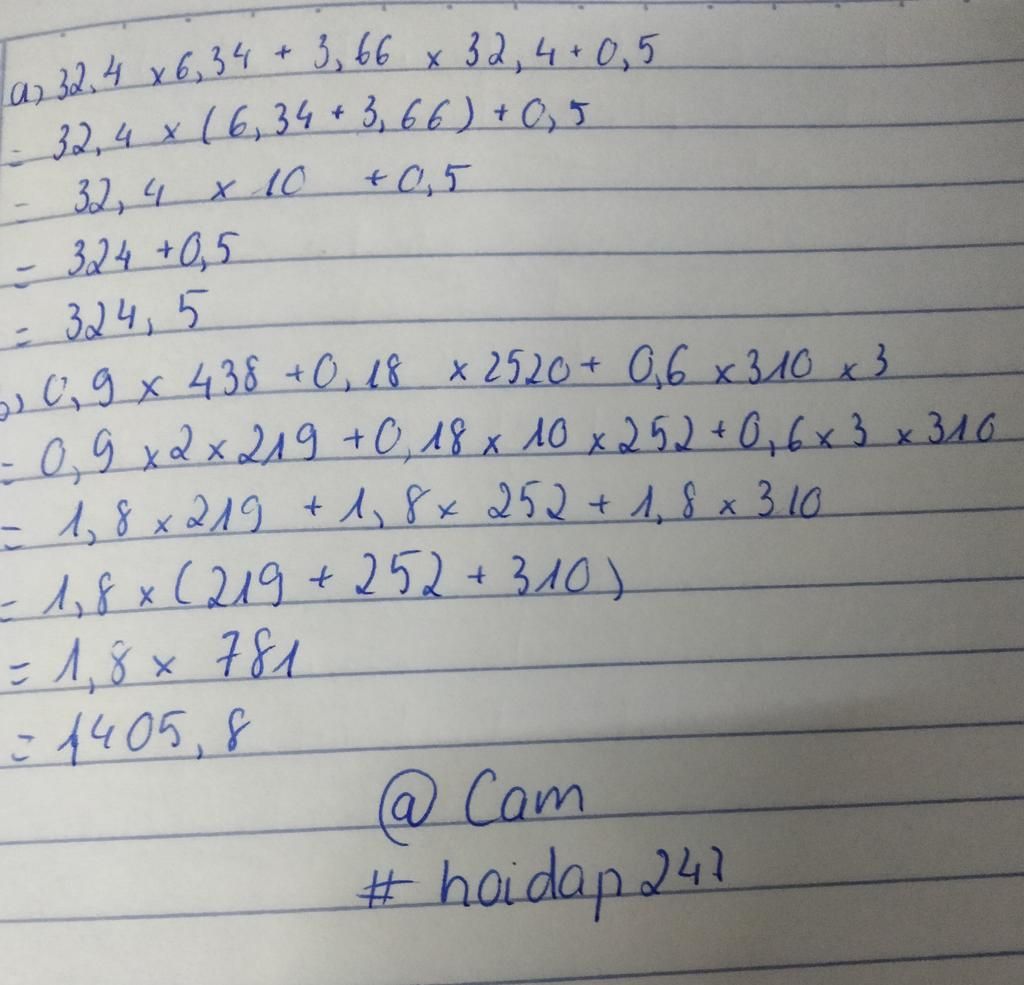 a, 32,4 x 6,34 + 3,66 x 32,4 + 0,5
= 32,4 x (6,34 + 3,66) + 0,5
= 32,4 x 10 + 0,5
= 324 + 0,5
= 324,5
b, 0,9 x 438 + 0,18 x 2520 + 0,6 x 310 x 3
= 0,9 x 2 x 219 + 0,18 x 10 x 252 + 0,6 x 3 x 310
= 1,8 x 219 + 1,8 x 252 + 1,8 x 310
= 1,8 x (219 + 252 + 310)
= 1,8 x 781
= 1405,8
@ Cam
# hoidap247